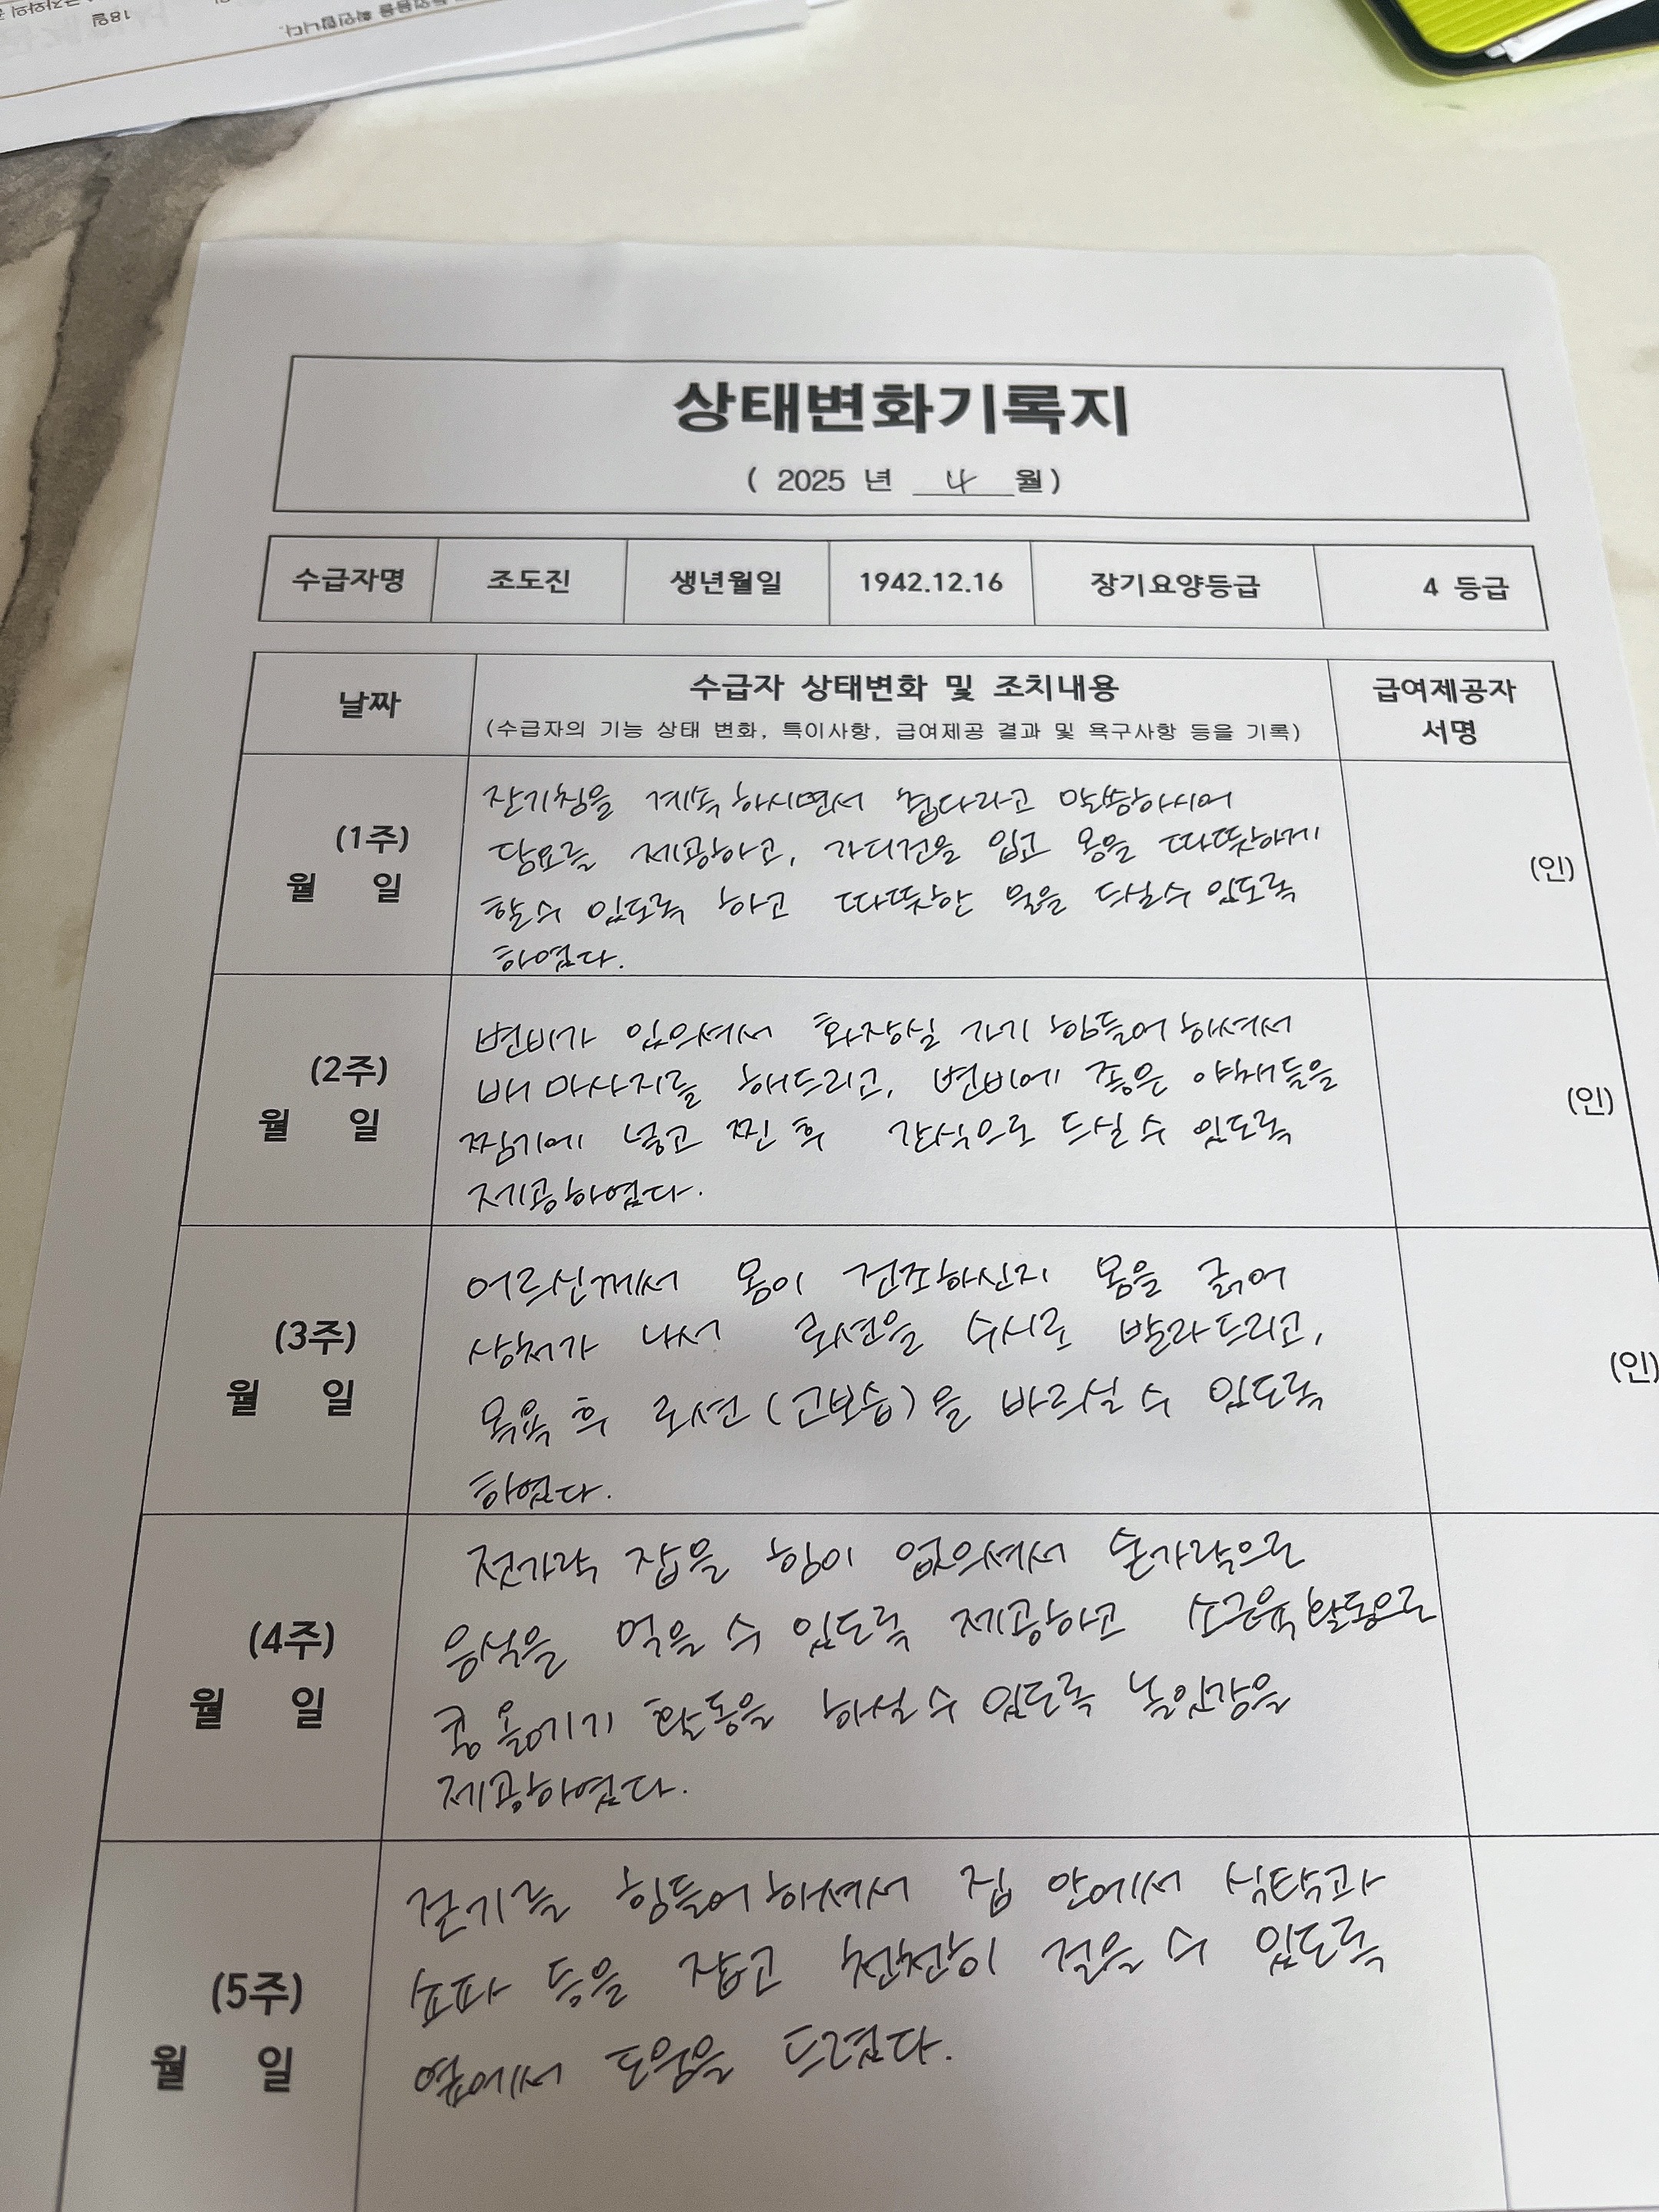 18일
확인합니다.
상태변화기록지
( 2025 년 4 월)
수급자명 조도진 생년월일 1942.12.16 장기요양등급 4 등급
날짜 수급자 상태변화 및 조치내용 급여제공자
(수급자의 기능 상태 변화, 특이사항, 급여제공 결과 및 욕구사항 등을 기록) 서명
잔기침을 계속 하시면서 춥다라고 말씀하시어
(1주) 담요를 제공하고, 가디건을 입고 몸을 따뜻하게
월 일 할수 있도록 하고 따뜻한 물을 드실수 있도록 (인)
하였다.
변비가 있으셔서 화장실 가기 힘들어 하셔서
(2주) 배 마사지를 해드리고, 변비에 좋은 야채들을
월 일 찜기에 넣고 찐 후 간식으로 드실 수 있도록 (인)
제공하였다.
어르신께서 몸이 건조하신지 몸을 긁어
(3주) 상처가 나서 로션을 수시로 발라드리고,
월 일 목욕 후 로션(고보습)을 바르실 수 있도록 (인)
하였다.
젓가락 잡을 힘이 없으셔서 손가락으로
(4주) 음식을 먹을 수 있도록 제공하고 소근육활동으로
월 일 콩 옮기기 활동을 하실 수 있도록 놀잇감을
제공하였다.
걷기를 힘들어하셔서 집 안에서 식탁과
(5주) 쇼파 등을 잡고 천천히 걸을 수 있도록
월 일 옆에서 도움을 드렸다.